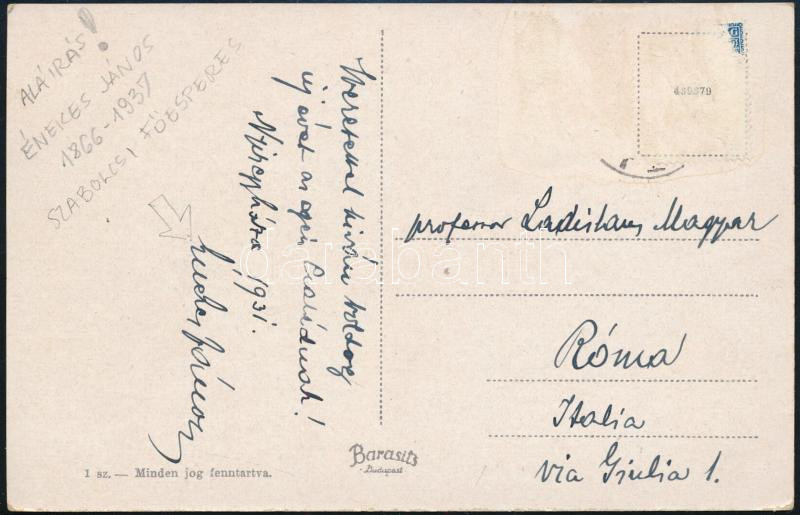 ALÁIRÁS!
ÉNEKES JÁNOS
1866-1937
SZABOLCSI FŐESPERES
Szeretettel kíván boldog
új évet az egész Családnak!
Nyíregyháza 1931.
Énekes János
439379
professor Ladislaus Magyar
Róma
Italia
via Giulia 1.
1 sz. — Minden jog fenntartva.
Barasits
Budapest
darabanth